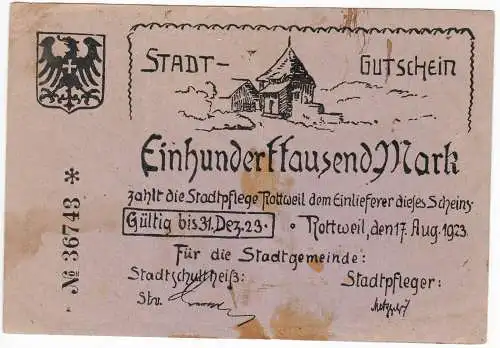 STADT- GUTSCHEIN
Einhunderttausend Mark
zahlt die Stadtpflege Rottweil dem Einlieferer dieses Scheins
Gültig bis 31. Dez. 23. • Rottweil, den 17. Aug. 1923
Für die Stadtgemeinde:
Stadtschultheiß: Stadtpfleger:
Stv.
№ 36743 *